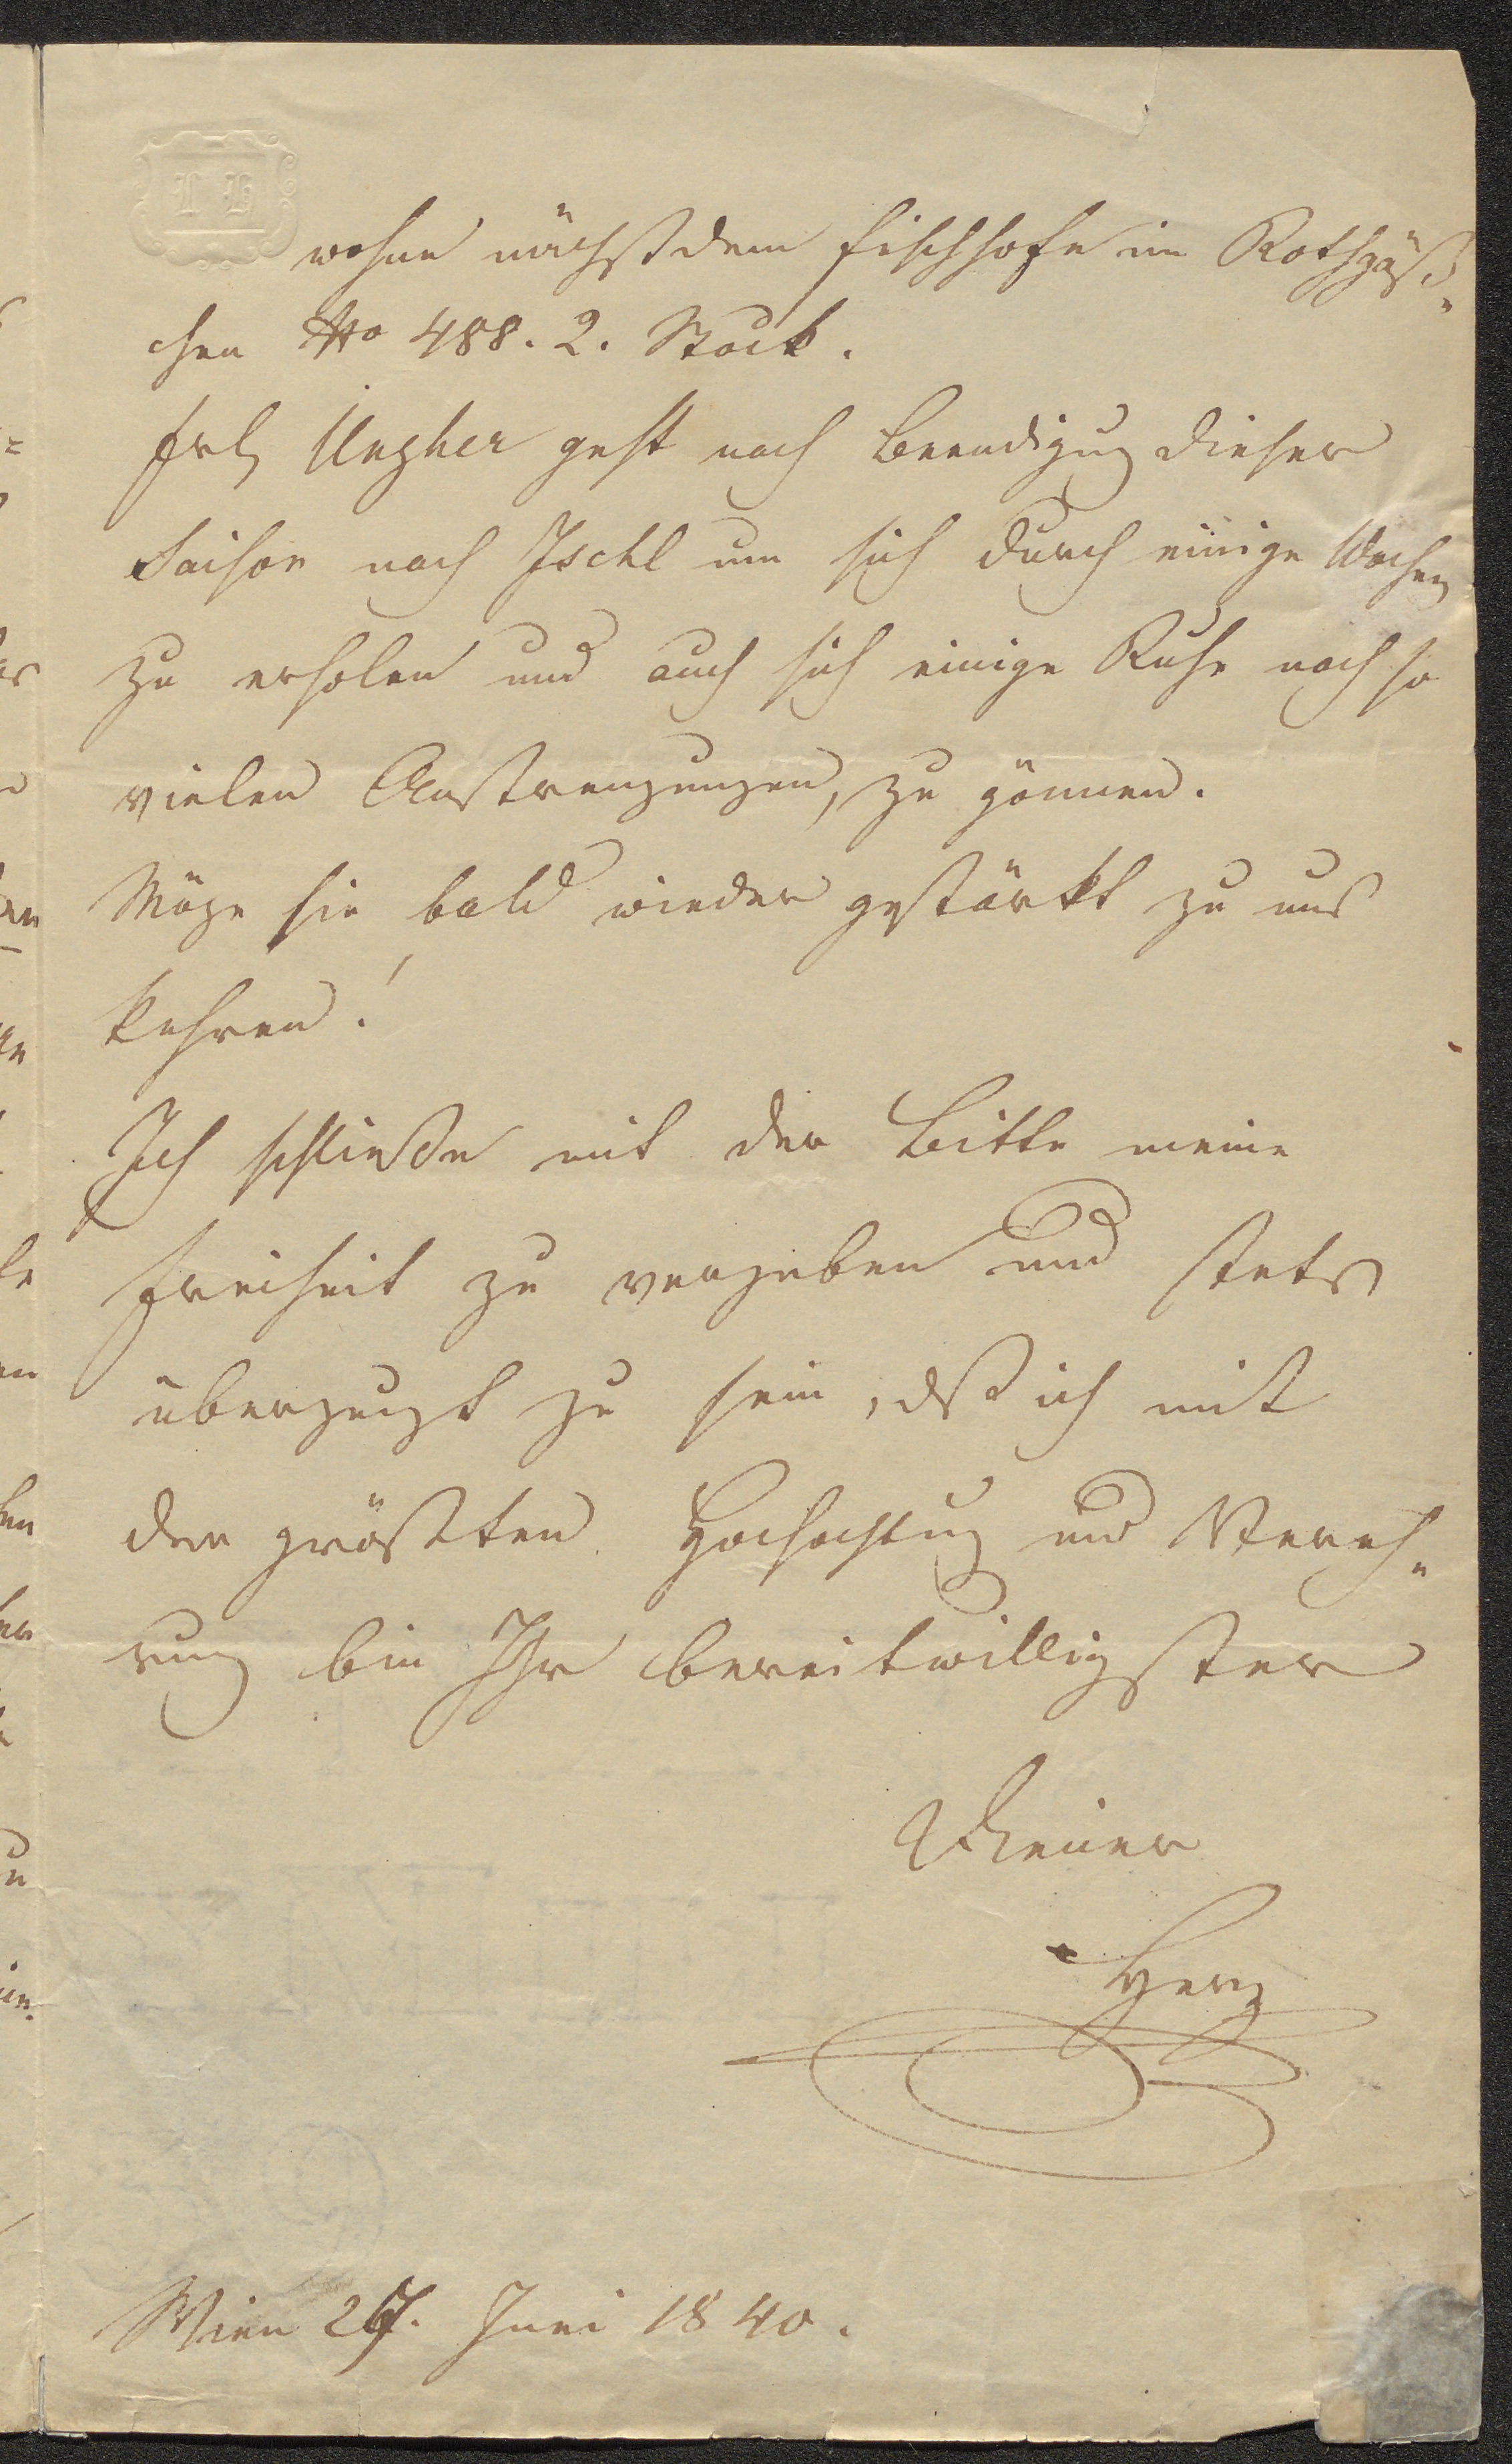 L H
wohne nächst dem Fischhofe im Rothgäß„
chen No 488. 2. Stock.
Frl. Ungher geht nach Beendigung dieser
Saison nach Ischl um sich durch einige Wochen
zu erholen und auch sich einige Ruhe nach so
vielen Anstrengungen, zu gönnen.
Möge sie bald wieder gestärkt zu uns
kehren!
Ich schließe mit der Bitte meine
Freiheit zu vergeben und stets
überzeugt zu sein, dß ich mit
der größten Hochachtung und Vereh„
rung bin Ihr bereitwilligster
Diener
Herz
Wien 27. Juni 1840.